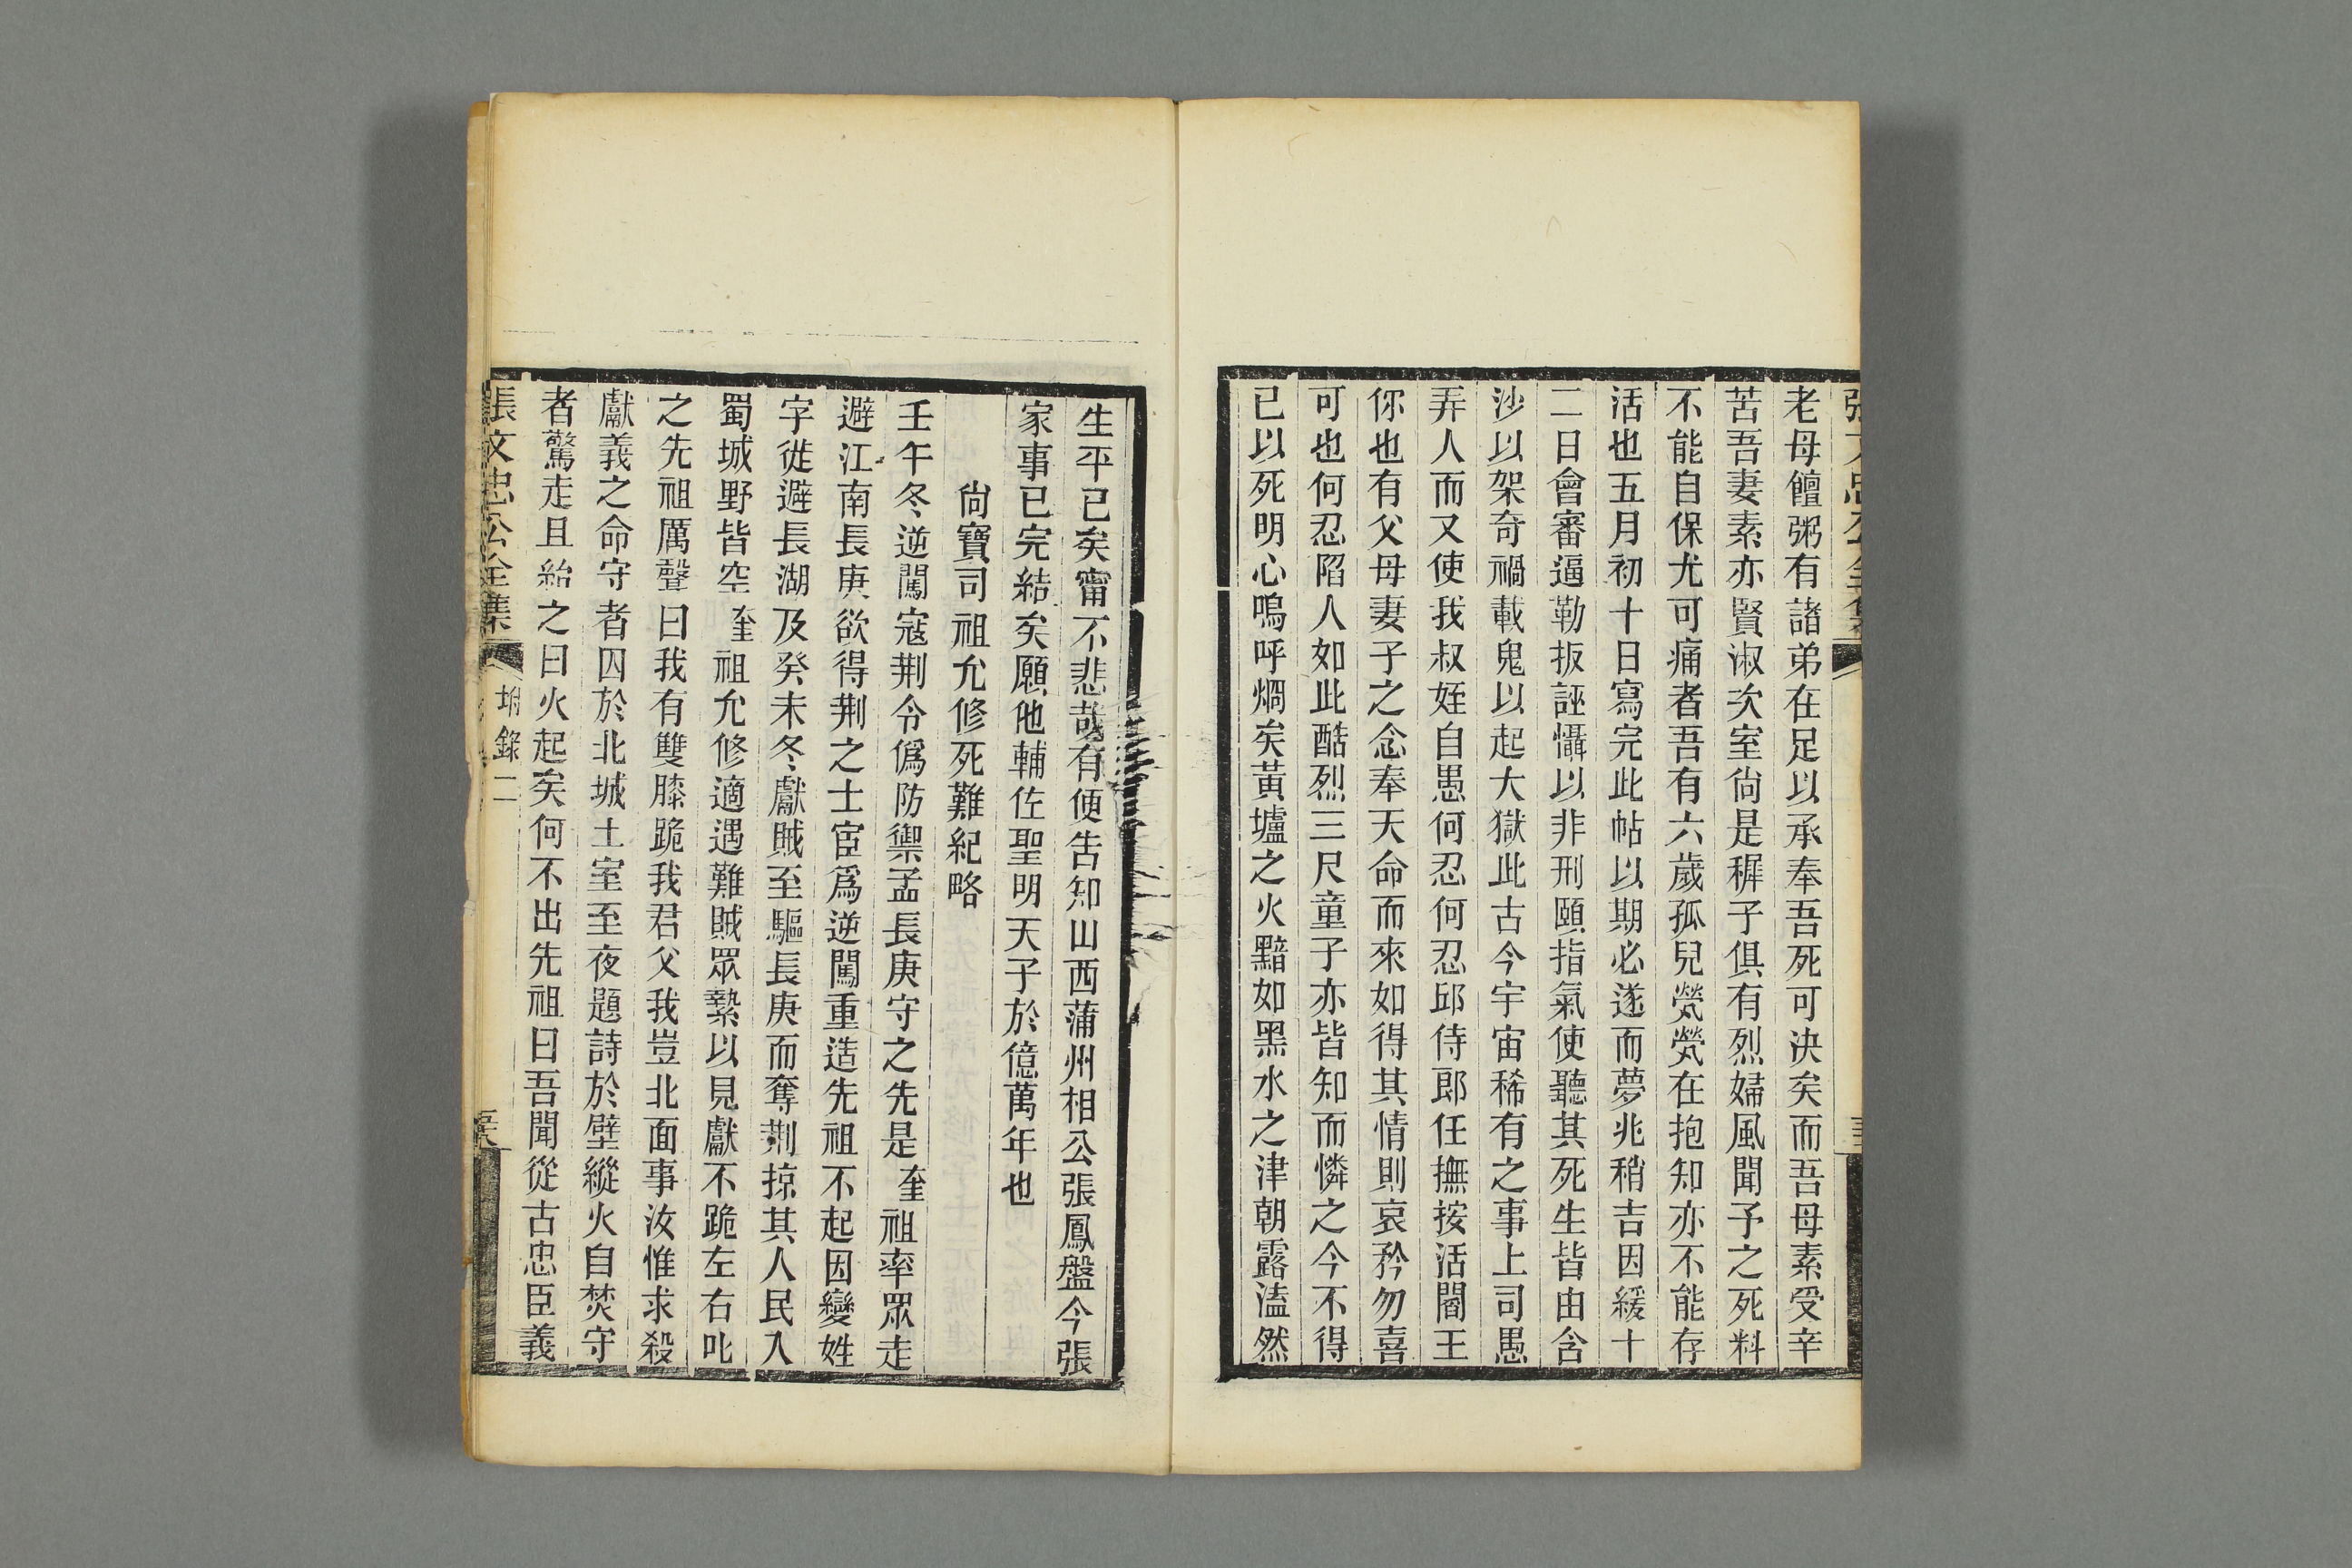 老母饘粥有諸弟在足以承奉吾死可決矣而吾母素受辛
苦吾妻素亦賢淑次室尙是穉子俱有烈婦風聞予之死料
不能自保尤可痛者吾有六歲孤兒煢煢在抱知亦不能存
活也五月初十日寫完此帖以期必遂而夢兆稍吉因緩十
二日會審逼勒扳誣懾以非刑頤指氣使聽其死生皆由含
沙以架奇禍載鬼以起大獄此古今宇宙稀有之事上司愚
弄人而又使我叔姪自愚何忍何忍邱侍郎任撫按活閻王
你也有父母妻子之念奉天命而來如得其情則哀矜勿喜
可也何忍陷人如此酷烈三尺童子亦皆知而憐之今不得
已以死明心嗚呼燗矣黃壚之火黯如黑水之津朝露溘然
生平已矣甯不悲哉有便告知山西蒲州相公張鳳盤今張
家事已完結矣願他輔佐聖明天子於億萬年也
尙寶司祖允修死難紀略
壬午冬逆闖寇荆令僞防禦孟長庚守之先是奎祖率眾走
避江南長庚欲得荆之士宦爲逆闖重造先祖不起因變姓
字徙避長湖及癸未冬獻賊至驅長庚而奪荆掠其人民入
蜀城野皆空奎祖允修適遇難賊眾縶以見獻不跪左右叱
之先祖厲聲曰我有雙膝跪我君父我豈北面事汝惟求殺
獻義之命守者囚於北城土室至夜題詩於壁縱火自焚守
者驚走且紿之曰火起矣何不出先祖曰吾聞從古忠臣義
張文忠公全集
坿錄二